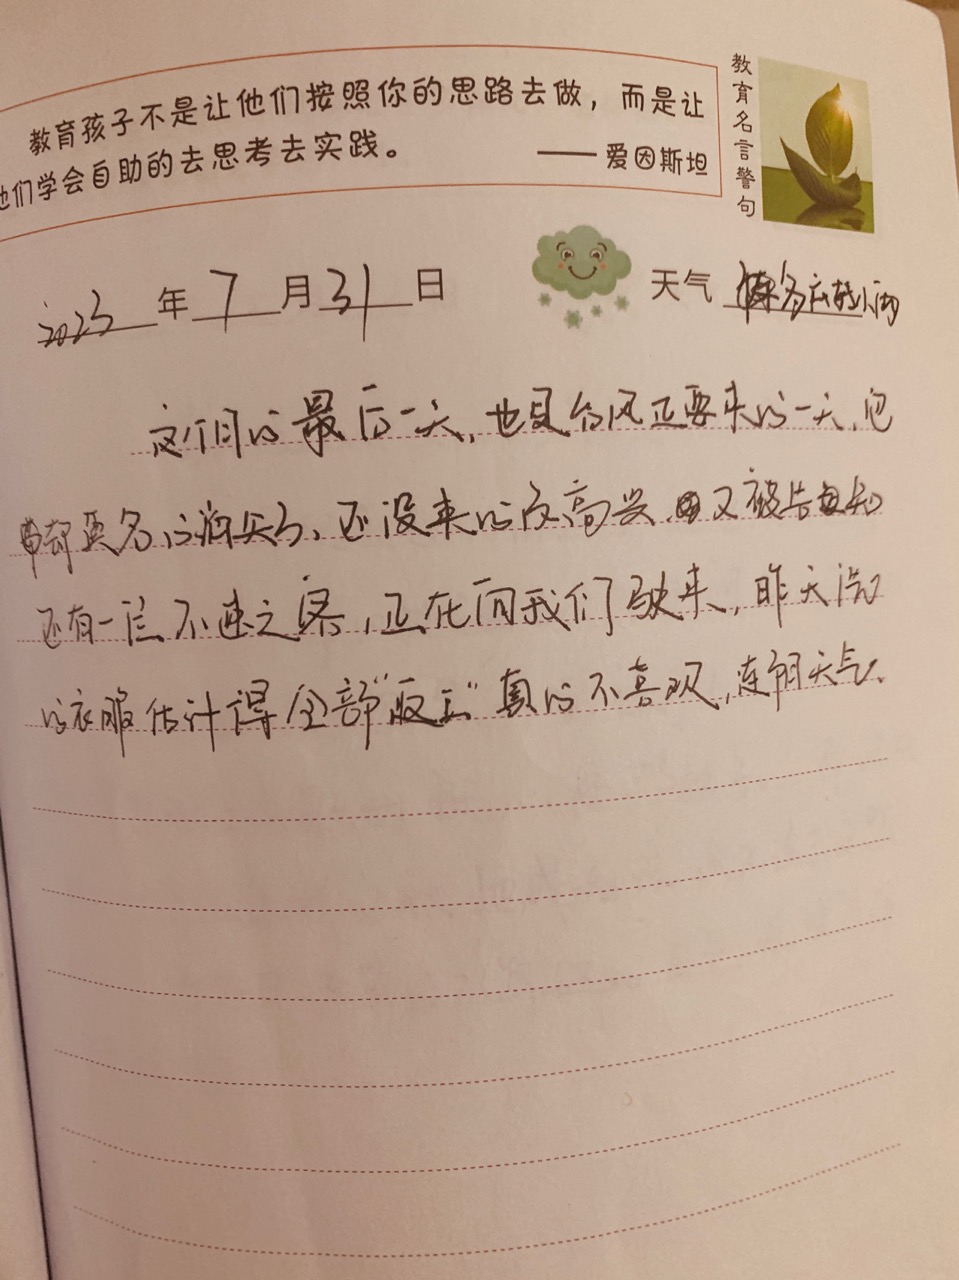 教育孩子不是让他们按照你的思路去做，而是让
他们学会自助的去思考去实践。 ——爱因斯坦
教育名言警句
2023年7月31日 天气 多云转小雨
这个月的最后一天，也是台风正要来的一天，它
却莫名的消失了，还没来的及高兴，又被告知
还有一位不速之客，正在向我们驶来，昨天洗
的衣服估计得全部“返工”真的不喜欢，连阴天气。